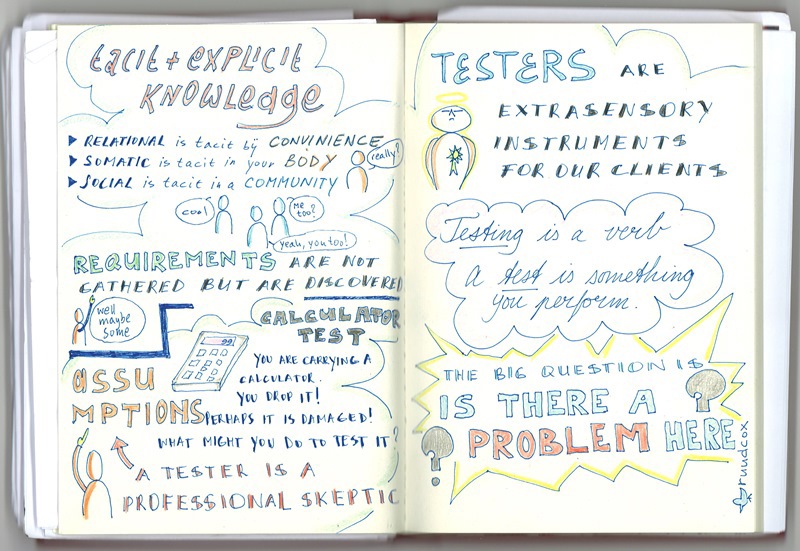 tacit + EXPLICIT
KNOWLedge
RELATIONAL is tacit by CONVINIENCE
SOMATIC is tacit in your BODY
SOCIAL is tacit in a COMMUNITY
really?
cool
Me too?
yeah, you too!
REQUIREMENTS ARE NOT
GATHERED BUT ARE DISCOVERED
well
maybe
some
CALCULATOR
TEST
99
YOU ARE CARRYING A
CALCULATOR.
YOU DROP IT!
PERHAPS IT IS DAMAGED!
WHAT MIGHT YOU DO TO TEST IT?
assu
MPTIONS
A TESTER IS A
PROFESSIONAL SKEPTIC
TESTERS ARE
EXTRASENSORY
INSTRUMENTS
FOR OUR CLIENTS
Testing is a verb
A test is something
you perform.
THE BIG QUESTION IS
IS THERE A
PROBLEM HERE
?
?
ruudcox